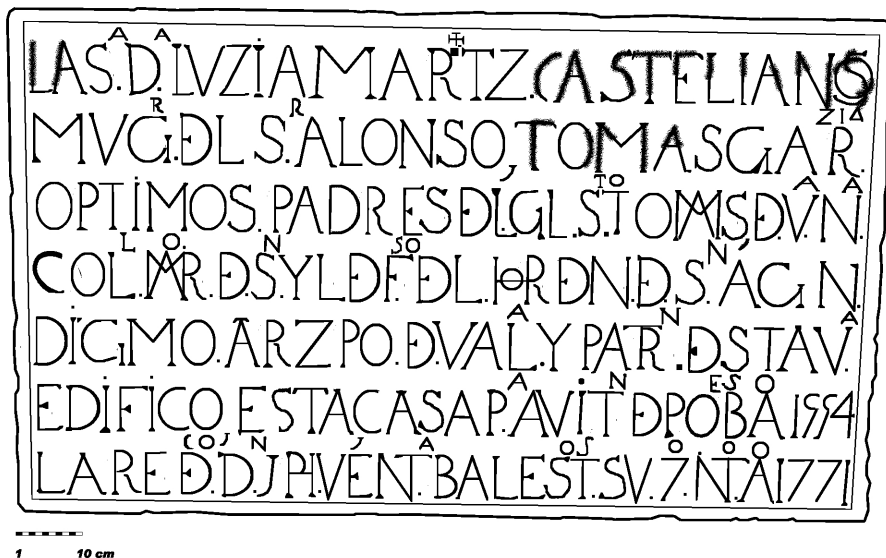 LA Sᴬ. Dᴬ. LVZIA MARTZ. CASTELIANS
MVGᴿ. DL Sᴿ. ALONSO, TOMAS GARᶻᴵᴬ.
OPTIMOS. PADRES DL GL. S.ᵀᴼ TOMAS D. V.ᴬ N.ᴬ
COL.ᴸ MR.ᴼ D. S.ᴺ Y L D F.ˢᴼ D L. HOR D N. D. S.ᴺ AGN.
DIGMO. ARZPO. D VAL.ᴬ Y PATR.ᴺ D STA V.ᴬ
EDIFICO ESTA CASA P.ᴬ AVITᴺ D POBᴱˢ Aᴼ 1554
LA REEDᶜᴼᴶ. Dᴺ. JPH. VENT.ᴬ BALEST.ᴼˢ SV. 7.ᴼ N.ᵒT Aᴼ 1771
1 10 cm